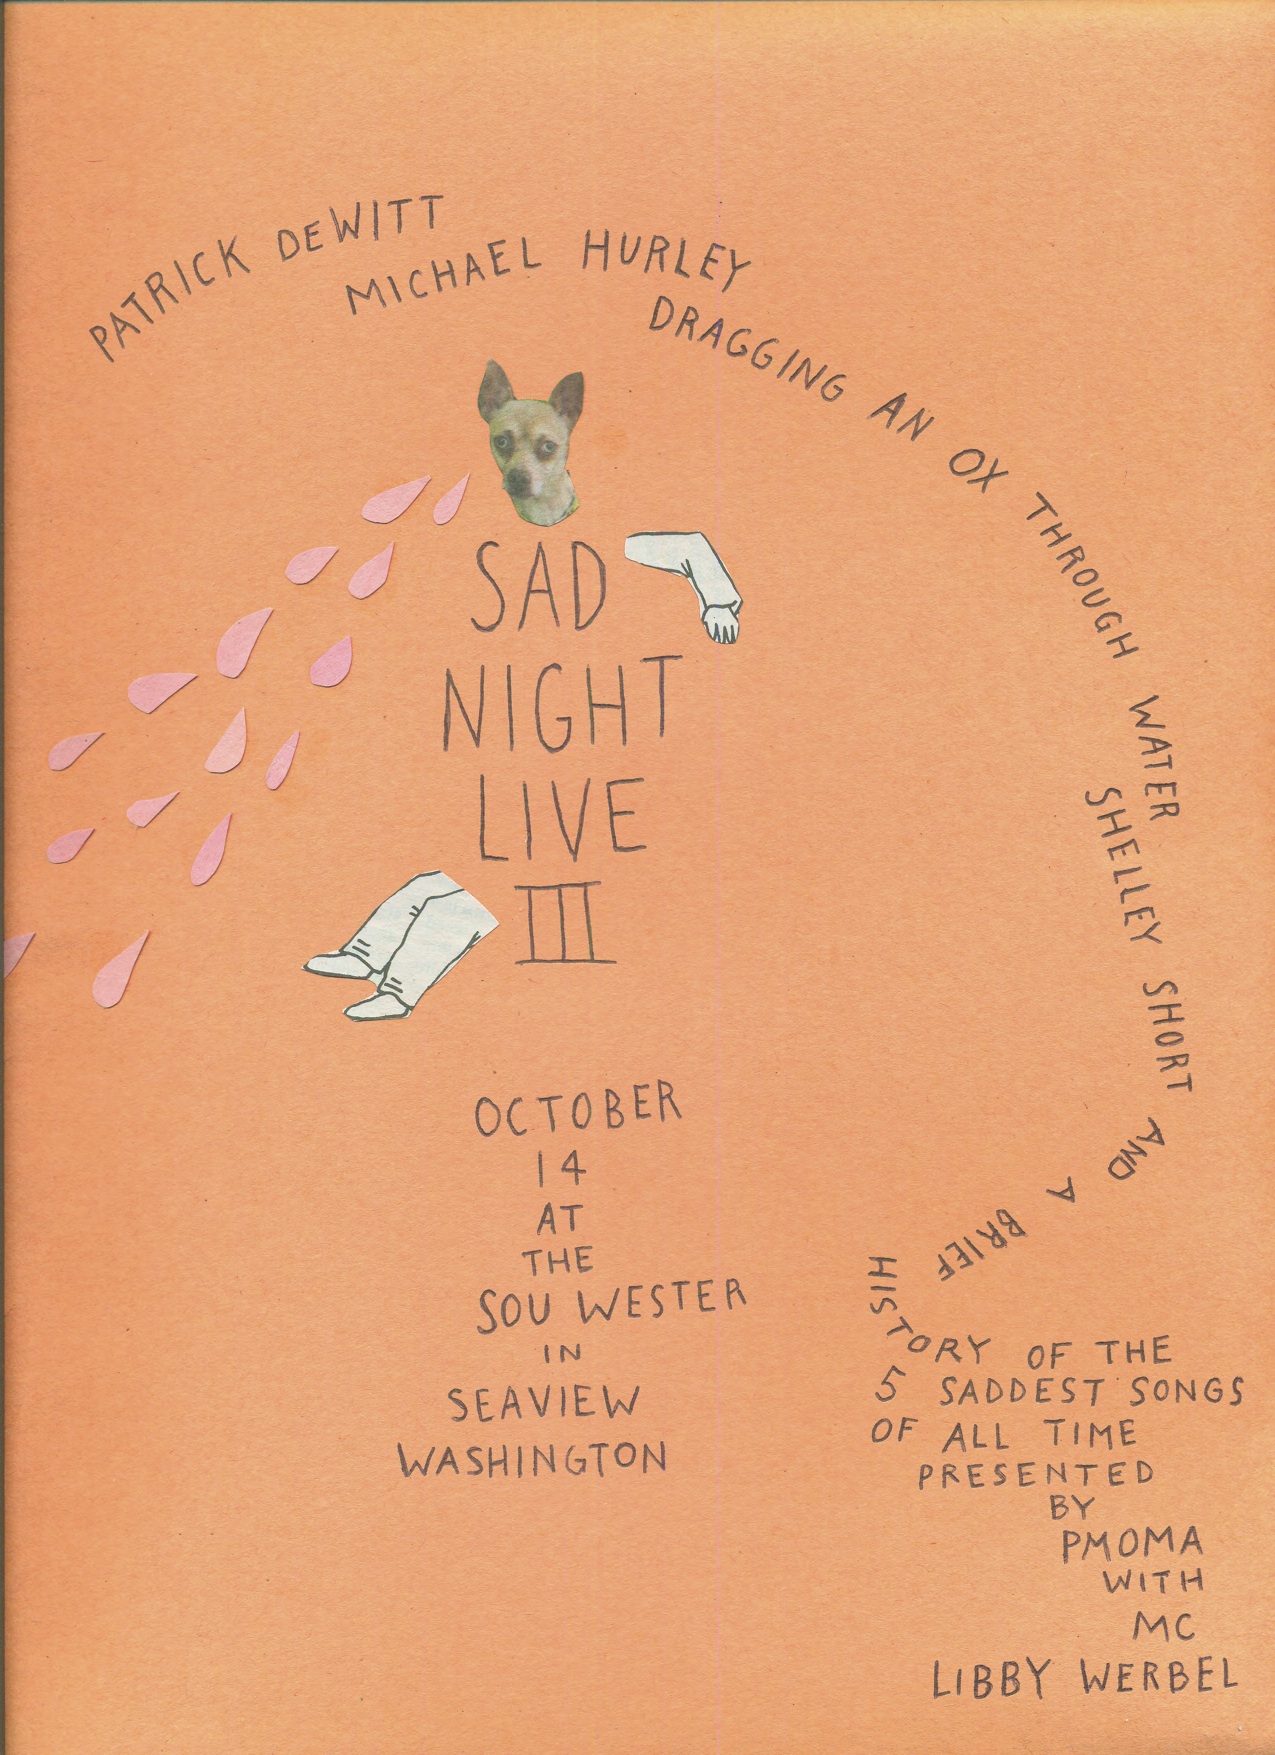 PATRICK DEWITT
MICHAEL HURLEY
DRAGGING AN OX THROUGH WATER
SHELLEY SHORT
AND A BRIEF
HISTORY OF THE
5 SADDEST SONGS
OF ALL TIME
PRESENTED
BY
PMOMA
WITH
MC
LIBBY WERBEL
SAD
NIGHT
LIVE
III
OCTOBER
14
AT
THE
SOU WESTER
IN
SEAVIEW
WASHINGTON